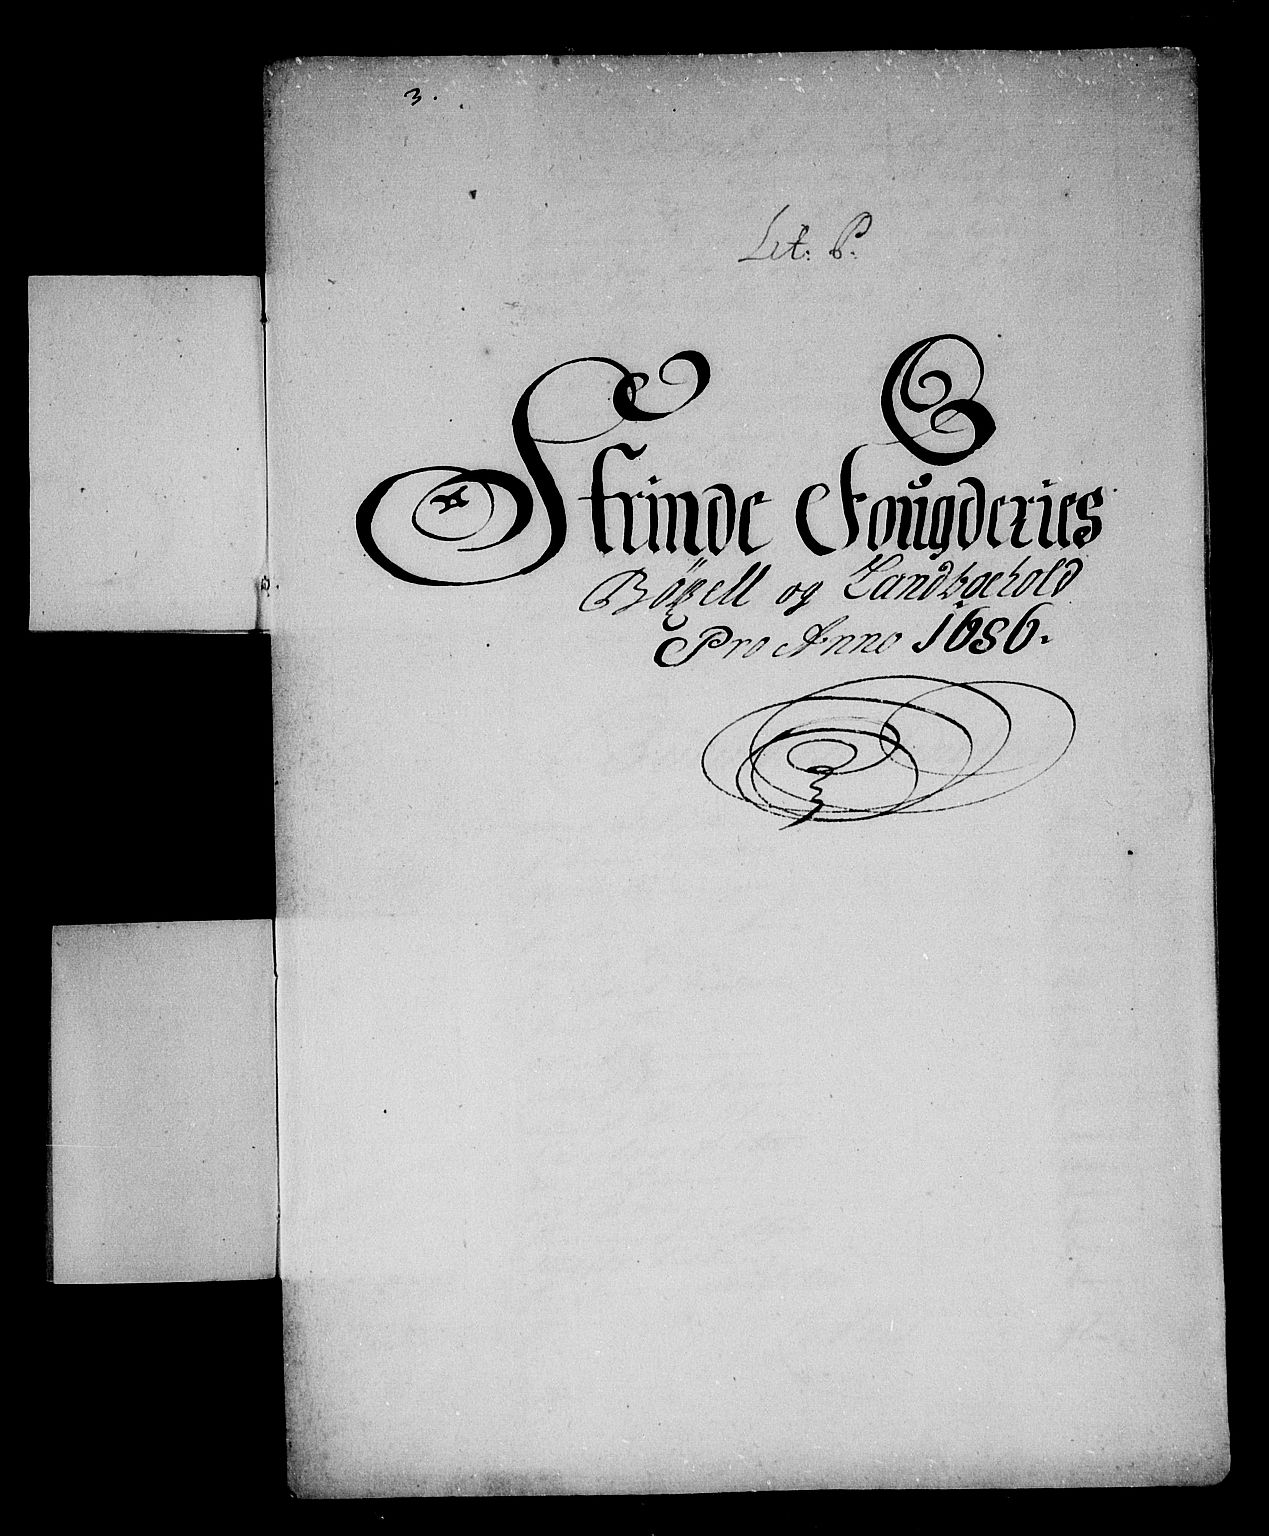 3.
Lit: P.
Strinde Fougderies
Böxell og Landbgehold
Pro Anno 1686.